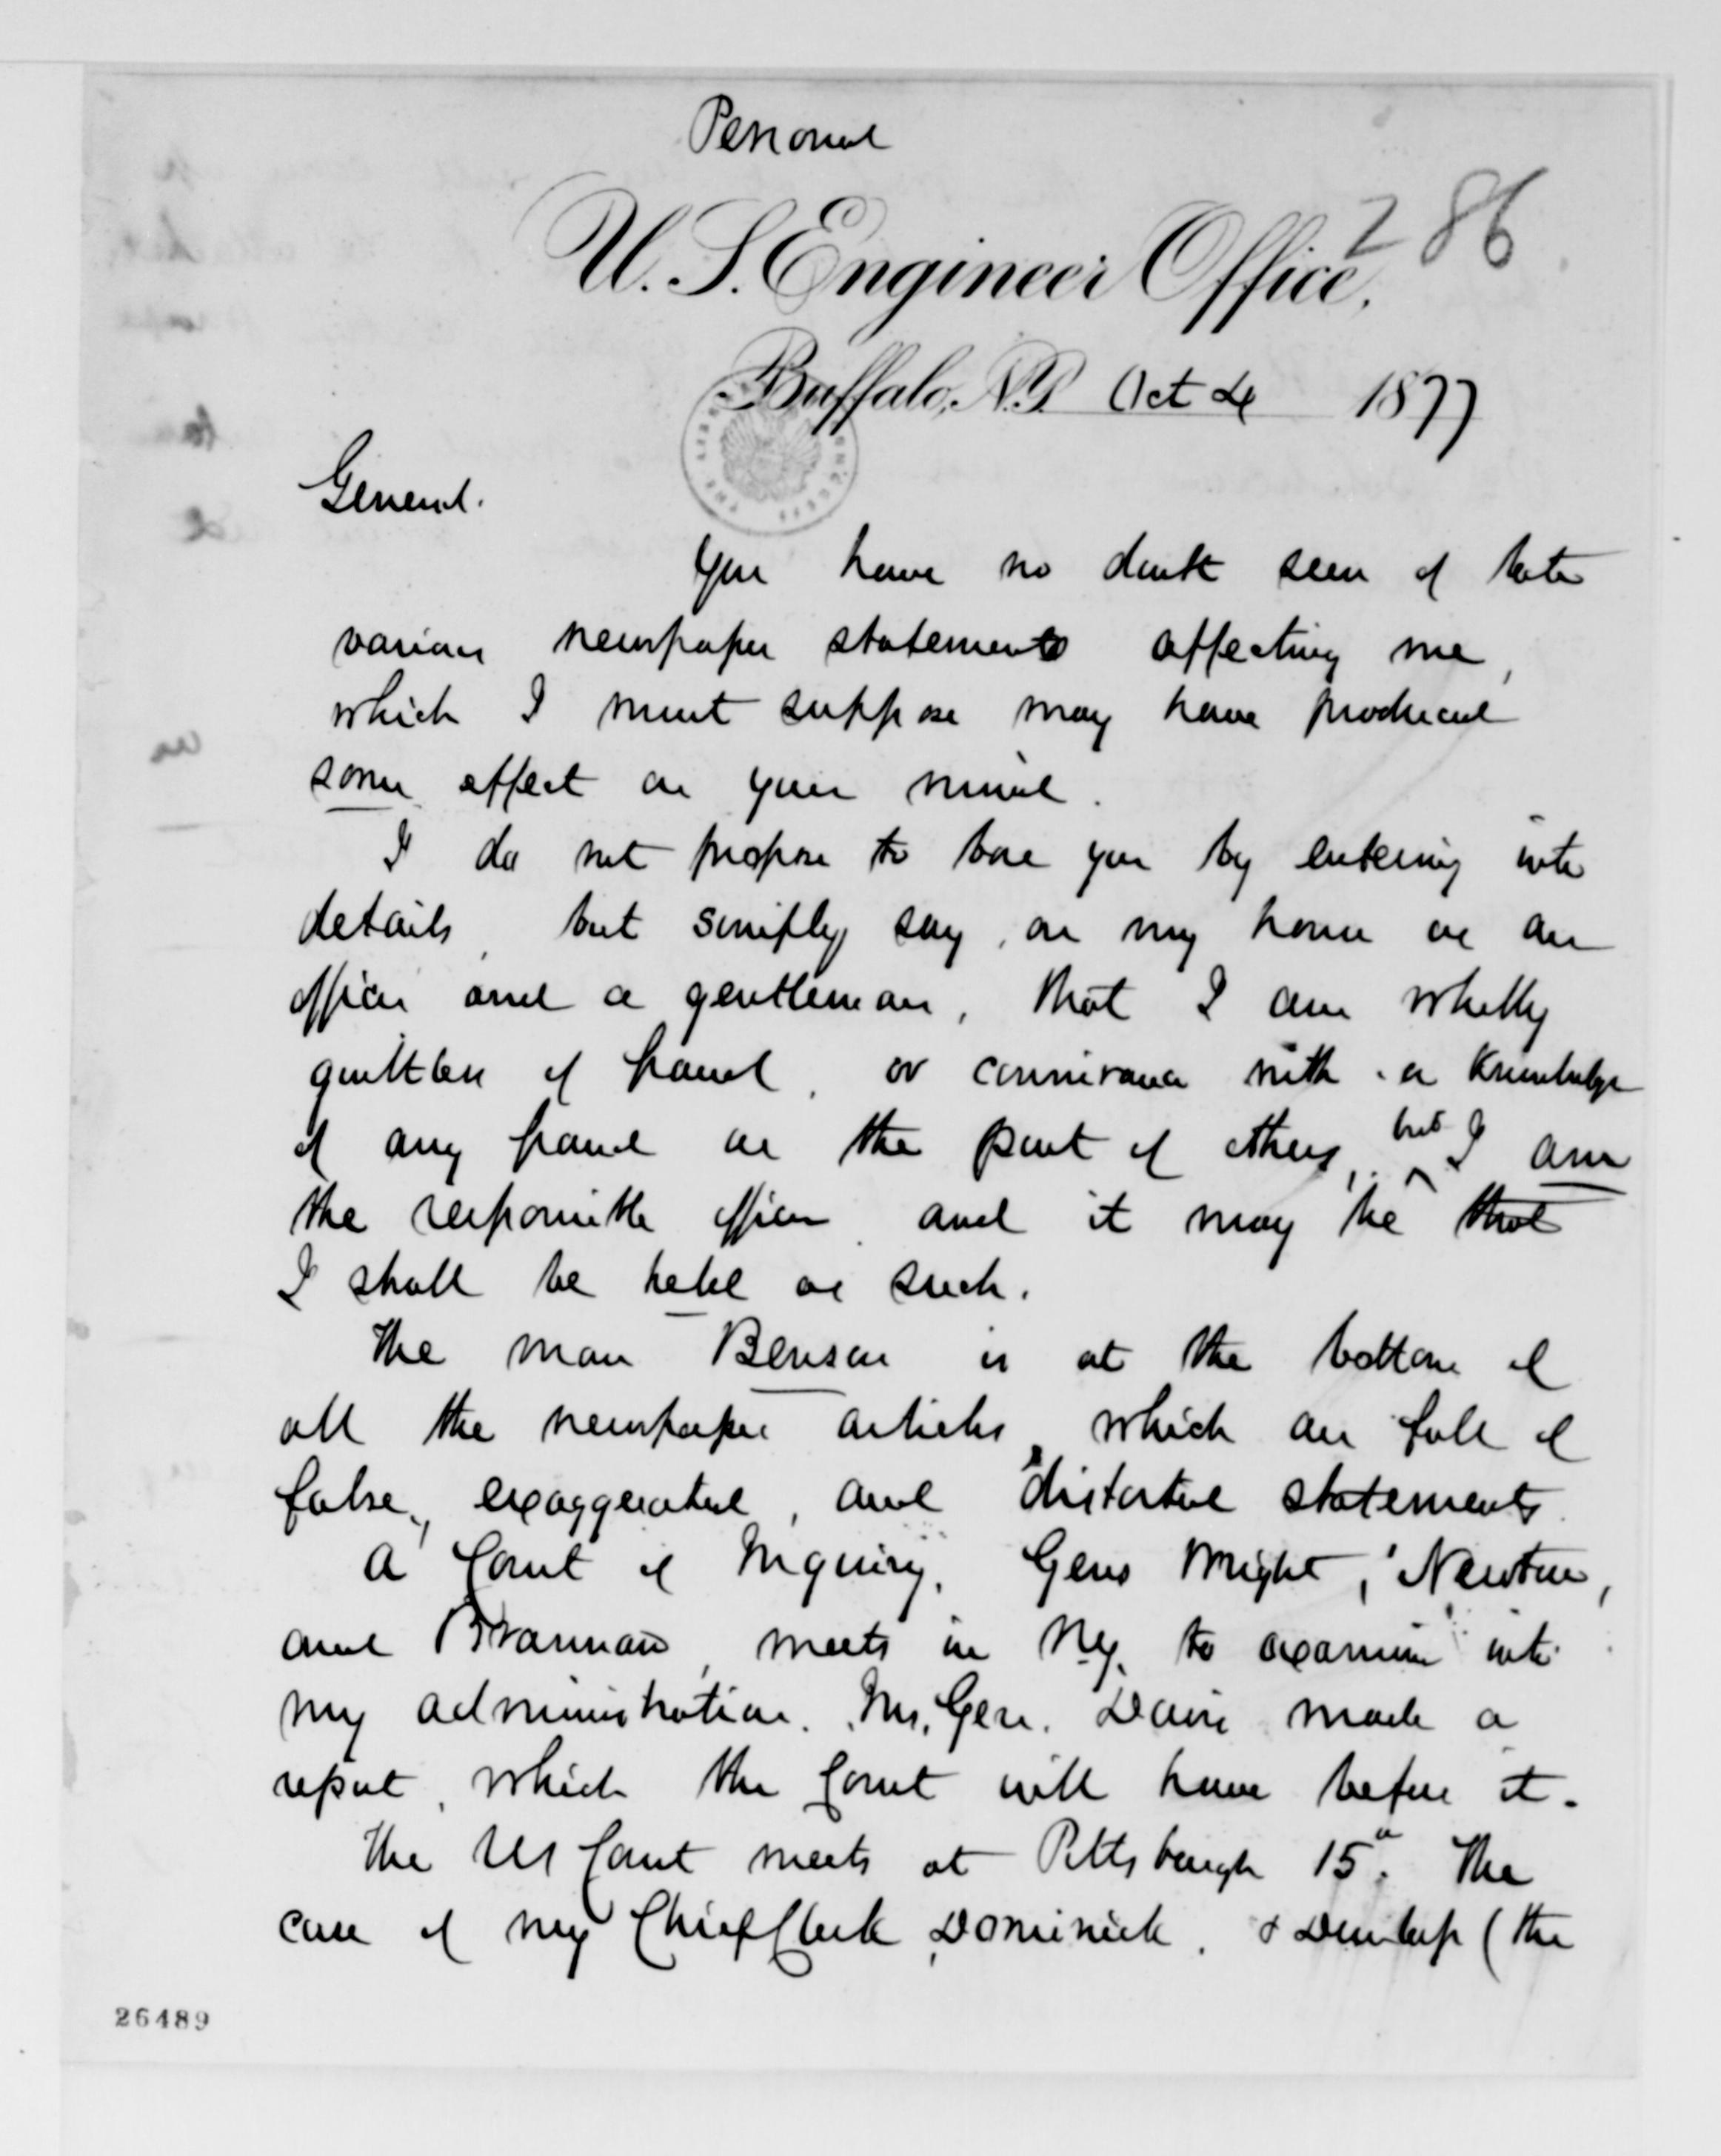 Personal
286
U. S. Engineer Office,
Buffalo, N.Y. Oct 4 1877
General.
You have no doubt seen of late
various newspaper statements affecting me,
which I must suppose may have produced
some effect on your mind.
I do not propose to bore you by entering into
details, but simply say, on my honor as an
officer and a gentleman, that I am wholly
guiltless of fraud, or connivance with or knowledge
of any fraud on the part of others, but I am
the responsible officer and it may be that
I shall be held as such.
The man Benson is at the bottom of
all the newspaper articles, which are full of
false, exaggerated, and distorted statements.
A Court of Inquiry, Gens Wright, Newton,
and Brannan, meets in N.Y. to examine into
my administration. Ins. Gen. Davis made a
report, which the Court will have before it.
The US Court meets at Pittsburgh 15". The
case of my Chief Clerk Dominick, & Dunlap (the
26489